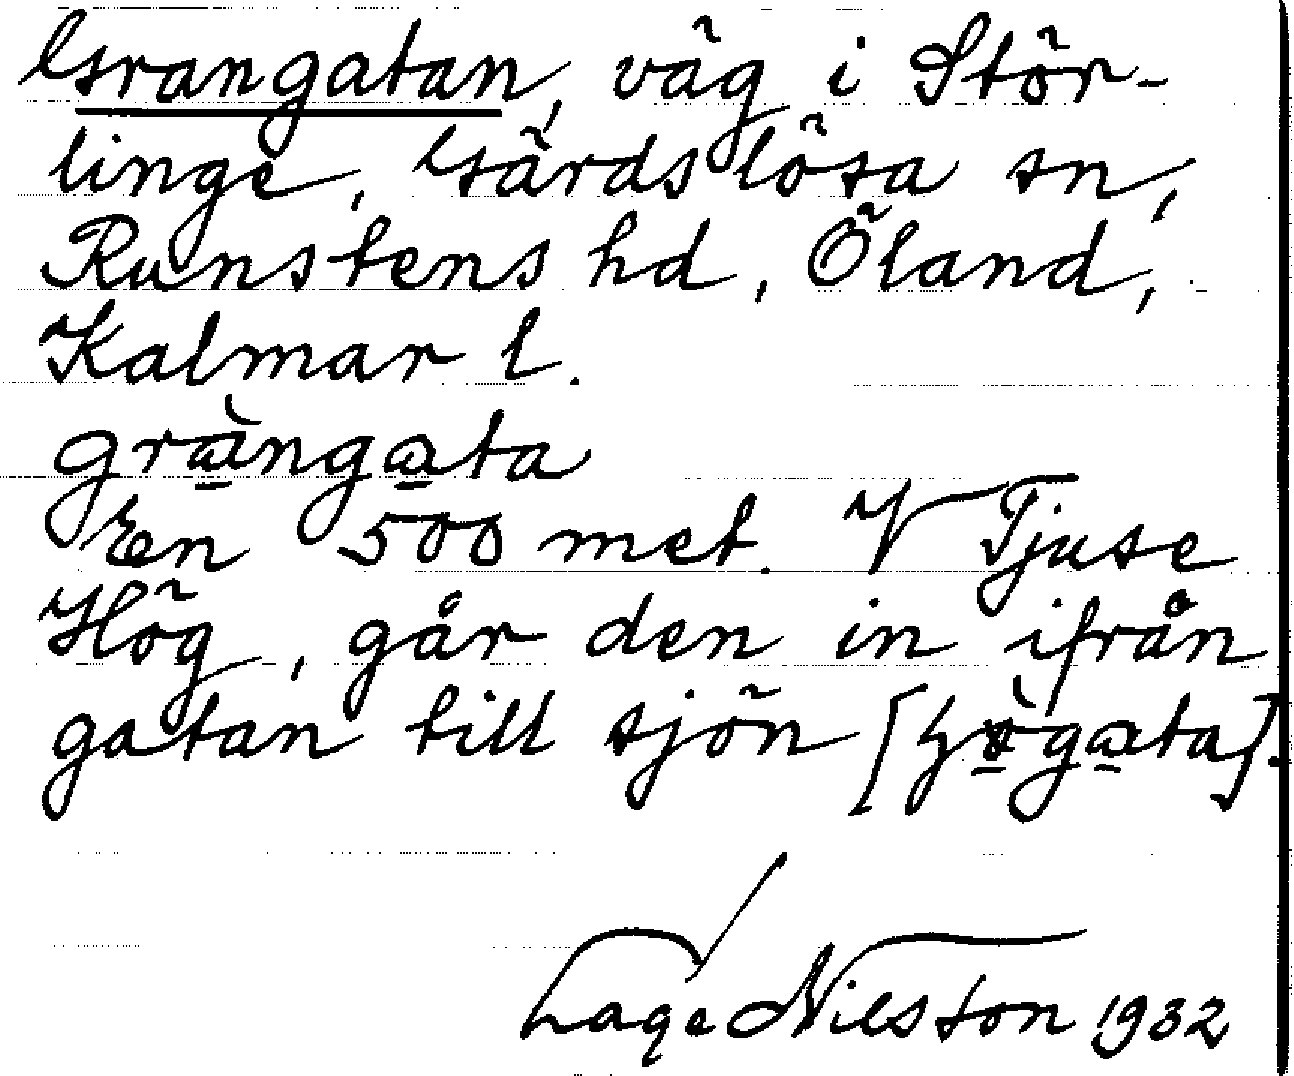 Grangatan, väg i Stör-
linge, Gärdslösa sn,
Runstens hd, Öland,
Kalmar l.
gràngata
En 500 met. V Tjuse
Hög, går den in ifrån
gatan till sjön [hògata].
Lage Nilsson 1932